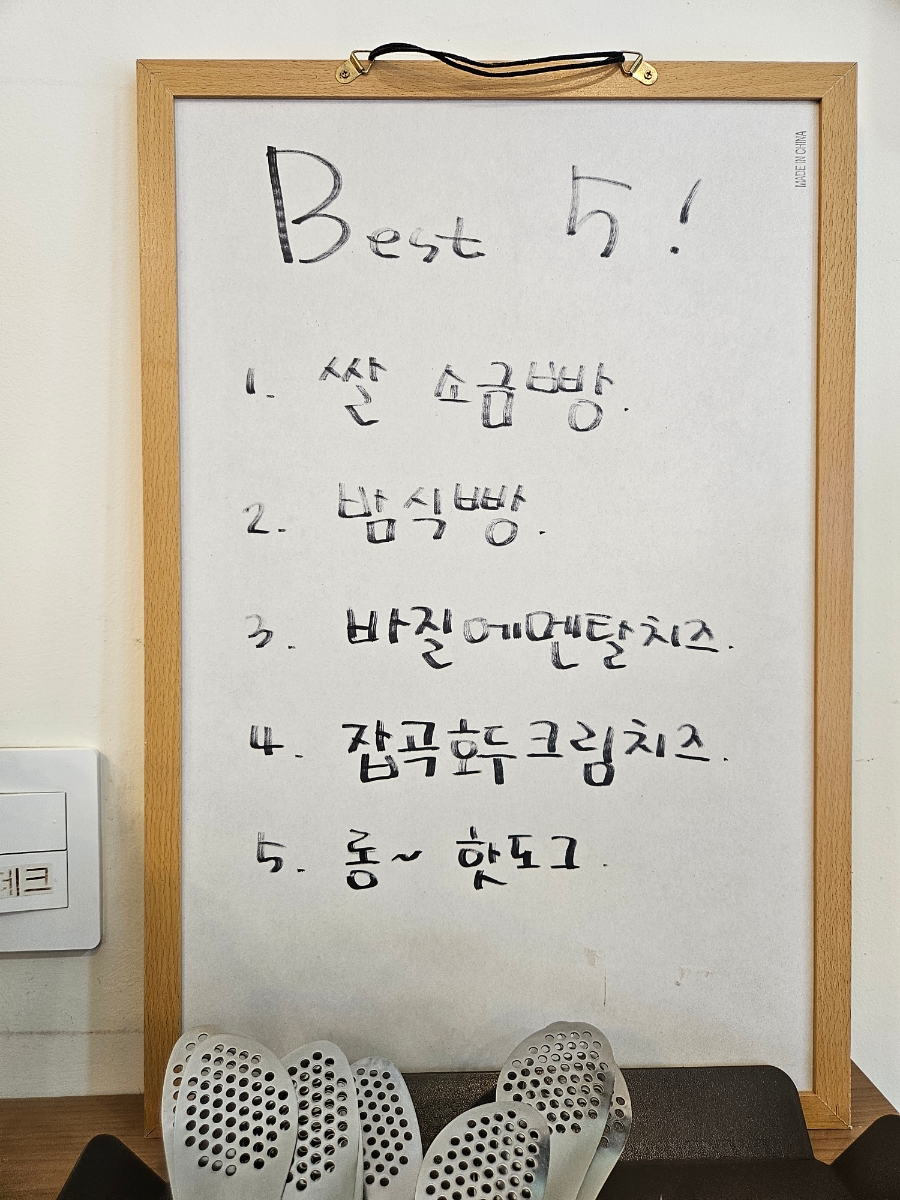 MADE IN CHINA
Best 5!
1. 쌀 소금빵.
2. 밤식빵.
3. 바질에멘탈치즈.
4. 잡곡호두크림치즈.
5. 롱~ 핫도그.